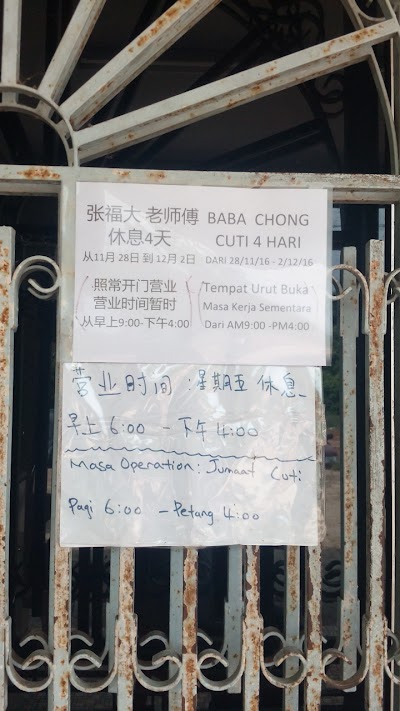 张福大 老师傅 BABA CHONG
休息4天 CUTI 4 HARI
从11月 28日 到 12月 2日 DARI 28/11/16 - 2/12/16
照常开门营业 Tempat Urut Buka
营业时间暂时 Masa Kerja Sementara
从早上9:00-下午4:00 Dari AM9:00 -PM4:00
营业时间:星期五 休息
早上 6:00 - 下午 4:00
Masa Operation: Jumaat Cuti
Pagi 6:00 - Petang 4:00